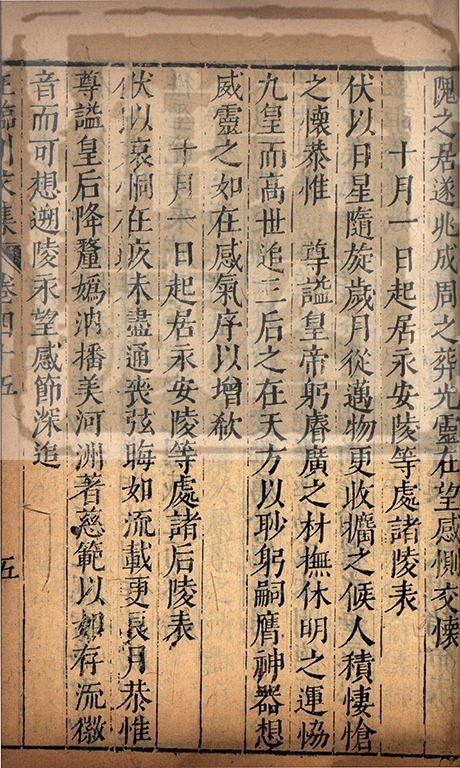 隗之居遂兆成周之葬光靈在望感惻交懷
十月一日起居永安陵等處諸陵表
伏以日星隨旋歲月從邁物更收擫之候人積悽愴
之懷恭惟　尊謚皇帝躬睿廣之材撫休明之運恊
九皇而高世追三后之在天方以眇躬嗣膺神器想
威靈之如在感氣序以增欷
十月一日起居永安陵等處諸后陵表
伏以哀恫在疚未盡通喪弦晦如流載更良月恭惟
尊謚皇后降釐嬀汭播美河洲著慈範以如存流徽
音而可想遡陵永望感節深追
王臨川文集　卷四十五　五